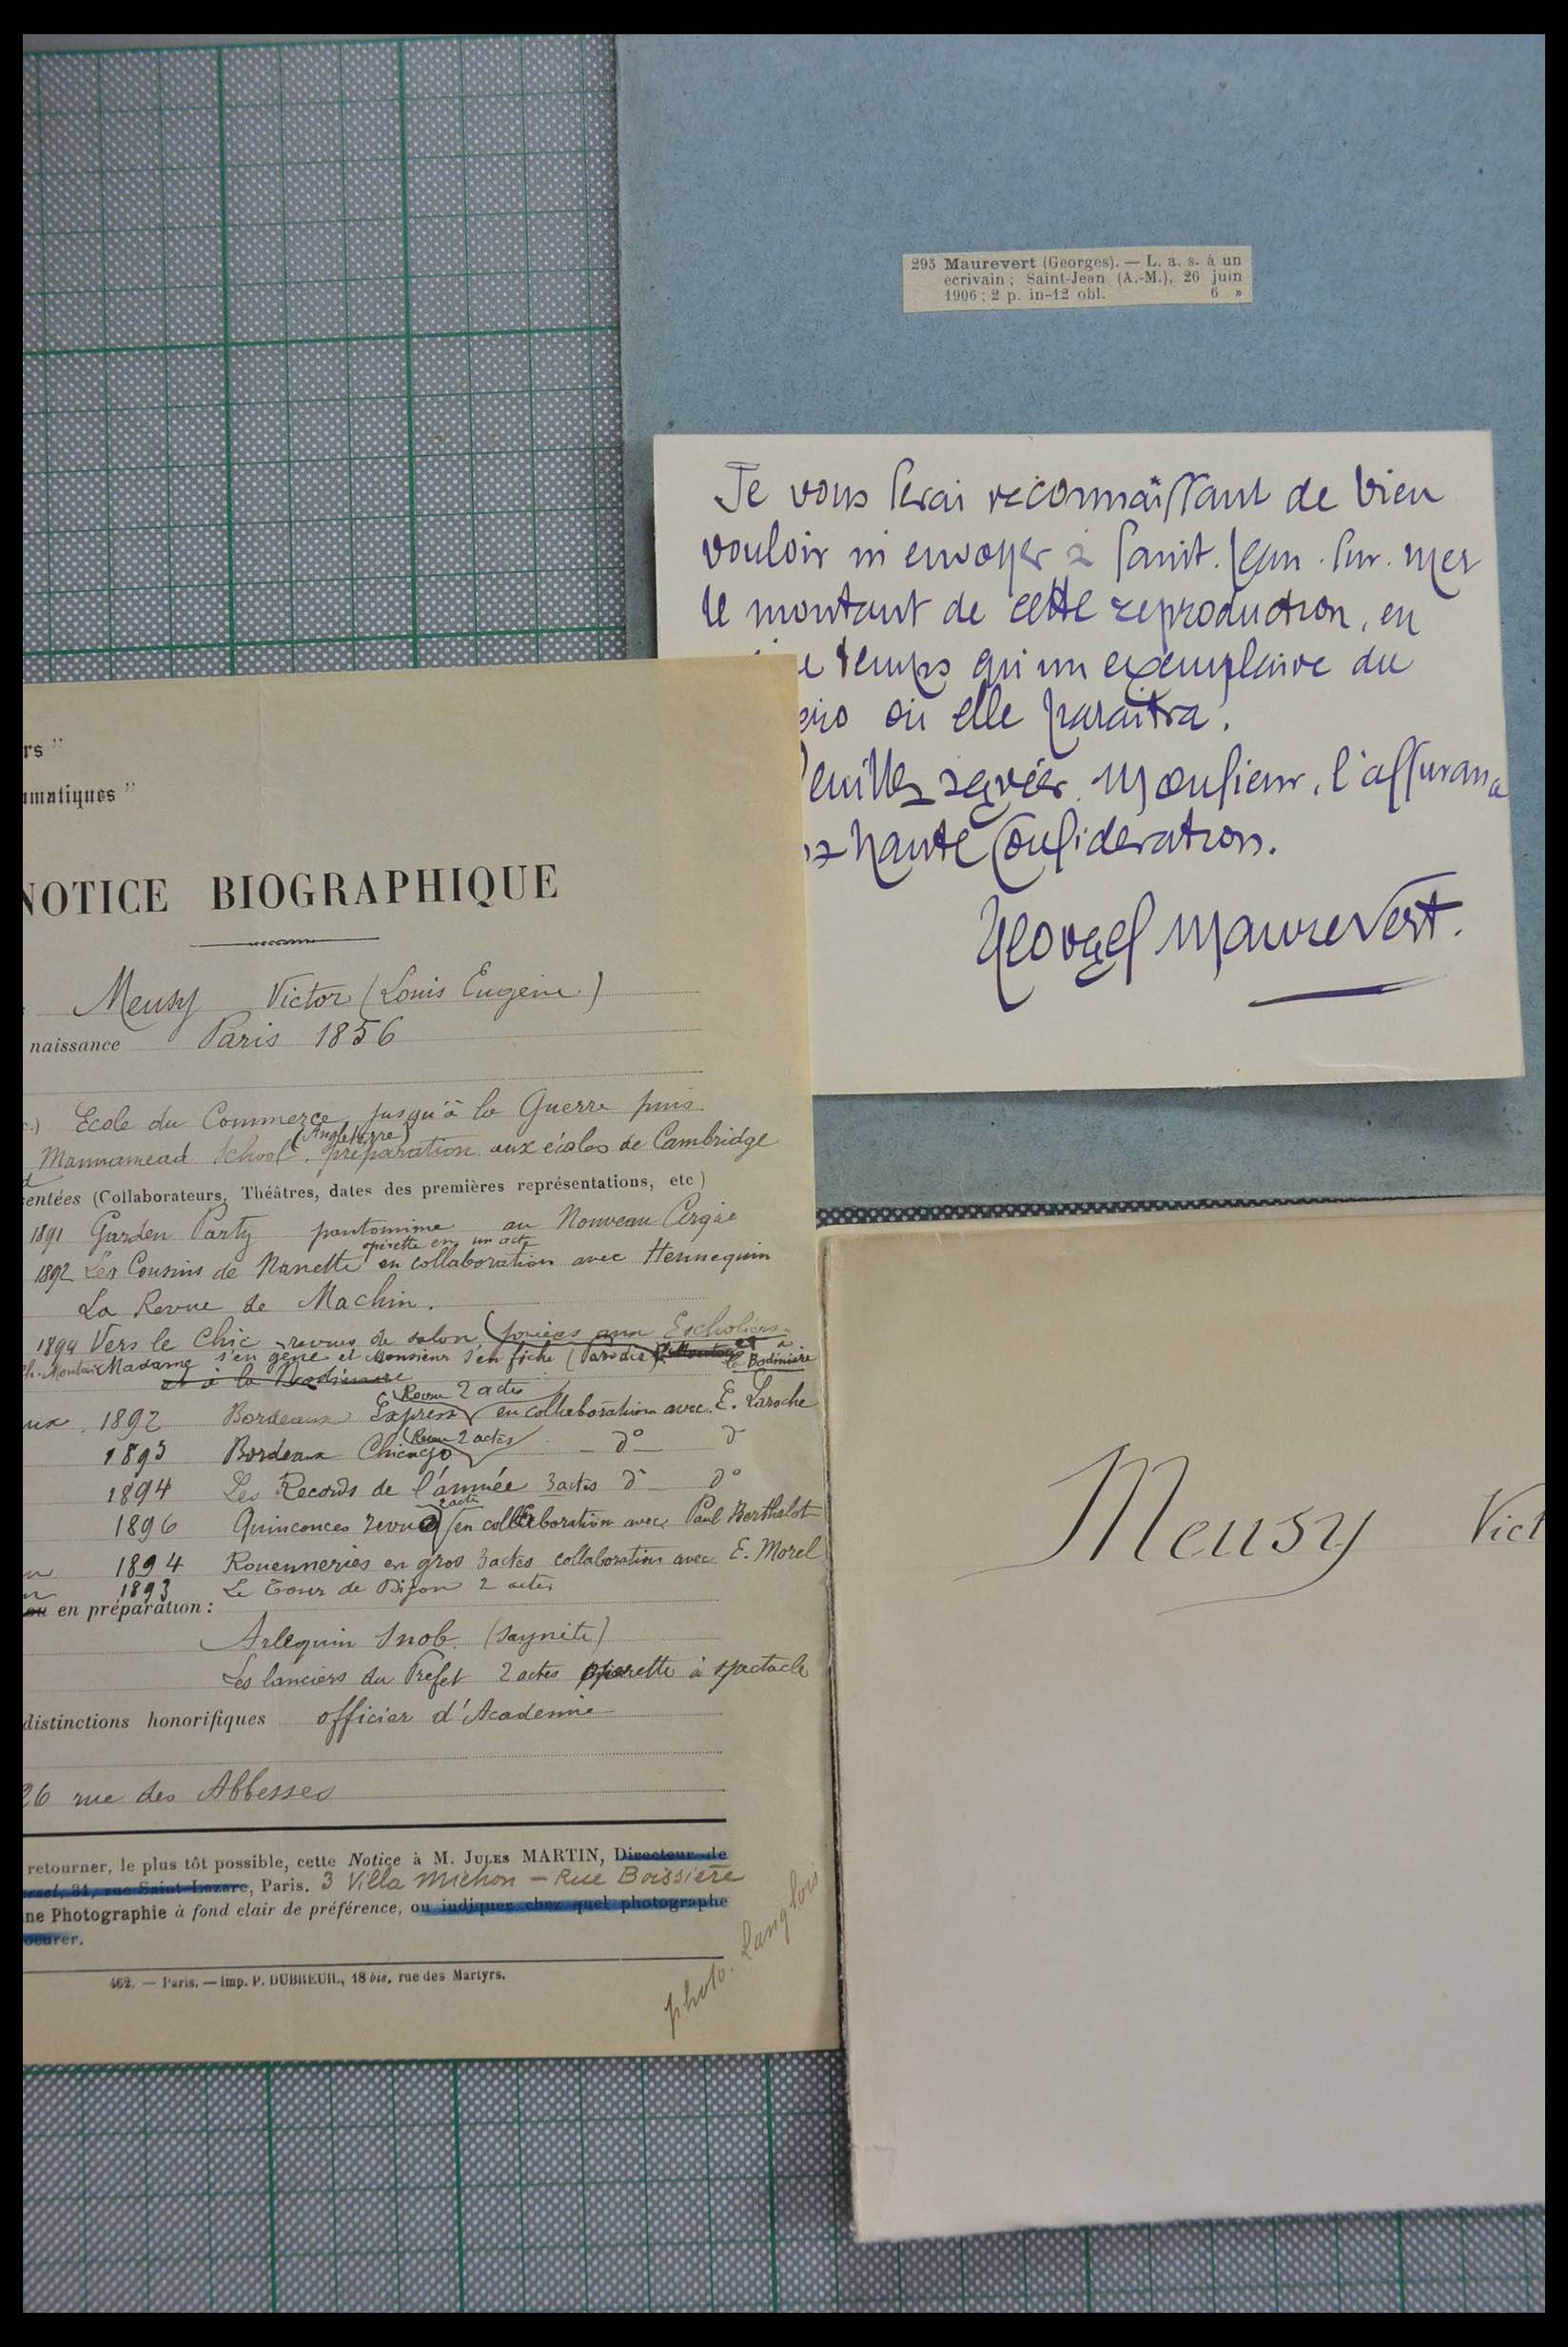 295 Maurevert (Georges). — L. a. s. à un
écrivain; Saint-Jean (A.-M.), 26 juin
1906; 2 p. in-12 obl. 6 »
Je vous serai reconnaissant de bien
vouloir m'envoyer à Saint-Jean-sur-mer
le montant de cette reproduction, en
temps qu'un exemplaire du
où elle paraitra.
agréer, Monsieur, l'assurance
haute considération.
Georges Maurevert.
rs"
matiques"
NOTICE BIOGRAPHIQUE
Meusy Victor (Louis Eugène)
naissance Paris 1856
c.) Ecole du Commerce jusqu'à la Guerre puis
Mannamead School (Angleterre) préparation aux écoles de Cambridge
entées (Collaborateurs, Théâtres, dates des premières représentations, etc)
1891 Garden Party pantomime au Nouveau Cirque
1892 Les Cousins de Nanette opérette en un acte en collaboration avec Hennequin
La Revue de Machin.
1894 Vers le Chic revue de salon aux Escholiers
Madame s'en gêne et Monsieur s'en fiche (Parodie) et à la Bodinière
et à la Bodinière
ux 1892 Bordeaux Express (Revue 2 actes) en collaboration avec E. Laroche
1893 Bordeaux Chicago (Revue 2 actes) — d° — d°
1894 Les Records de l'année 3 actes d° — d°
1896 Quinconces revue 2 actes en collaboration avec Paul Berthelot
1894 Rouenneries en gros 3 actes collaboration avec E. Morel
1893 Le Tour de Dijon 2 actes
ou en préparation :
Arlequin Snob. (saynète)
Les lanciers du Préfet 2 actes opérette à spectacle
distinctions honorifiques officier d'Académie
26 rue des Abbesses
retourner, le plus tôt possible, cette Notice à M. JULES MARTIN, Directeur de
ersel, 31, rue Saint-Lazare, Paris. 3 Villa Michon — Rue Boissière
ne Photographie à fond clair de préférence, ou indiquer chez quel photographe
ocurer.
462. — Paris. — Imp. P. DUBREUIL, 18 bis, rue des Martyrs.
photo. Langlois
Meusy Vict